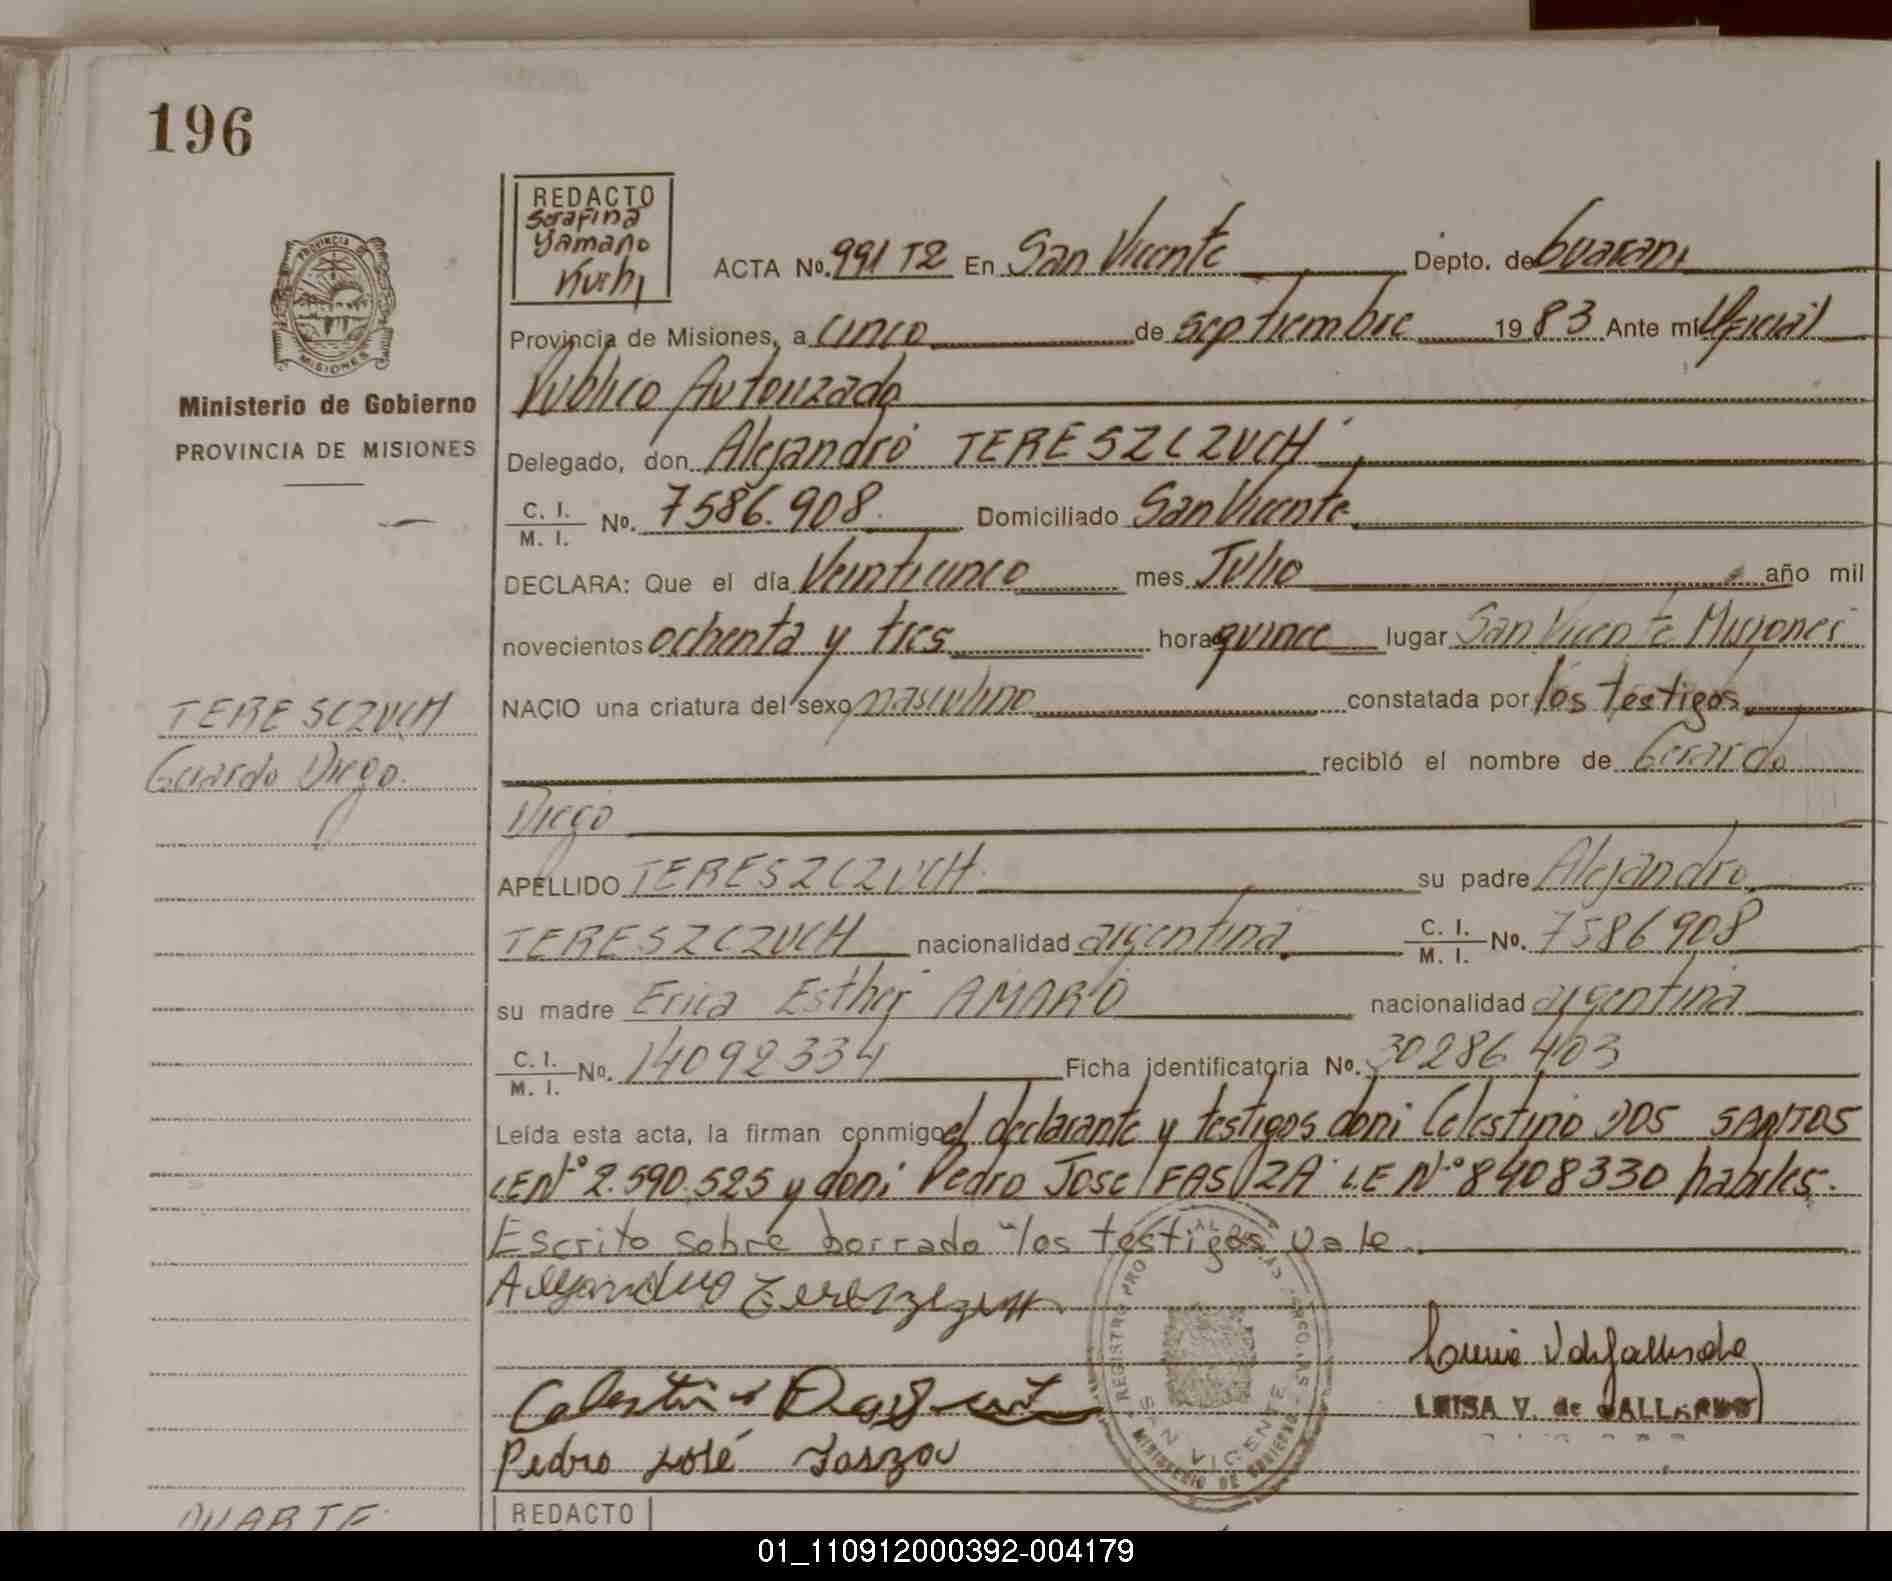 196
REDACTO
Serafina
Yamaño
Kuchi
ACTA No. 991 T2 En San Vicente Depto. de Guarani
Provincia de Misiones, a cinco de septiembre 19 83 Ante mi Oficial
Publico Autorizado
Ministerio de Gobierno
PROVINCIA DE MISIONES
Delegado, don Alejandro TERESZCZUCH
C. I. / M. I. No. 7586.908 Domiciliado San Vicente
DECLARA: Que el día Veinticinco mes Julio año mil
novecientos ochenta y tres hora quince lugar San Vicente Misiones
NACIO una criatura del sexo masculino constatada por los testigos
TERESCZUCH
Gerardo Diego.
recibló el nombre de Gerardo
Diego
APELLIDO TERESZCZUCH su padre Alejandro
TERESZCZUCH nacionalidad argentina C. I. / M. I. No. 7586908
su madre Erica Esther AMARO nacionalidad argentina
C. I. / M. I. No. 14092334 Ficha identificatoria No. 30286403
Leída esta acta, la firman conmigo el declarante y testigos don: Celestino DOS SANTOS
LE Nº 2.590.525 y don: Pedro Jose FASUZA LE Nº 8408330 habiles.
Escrito sobre borrado "los testigos vale
Alejandro
Pedro José
LUISA V. de GALLARDO
REGISTRO PRO
SAN VICENTE
MINISTERIO DE GOBIERNO
DUARTE
REDACTO
01_110912000392-004179